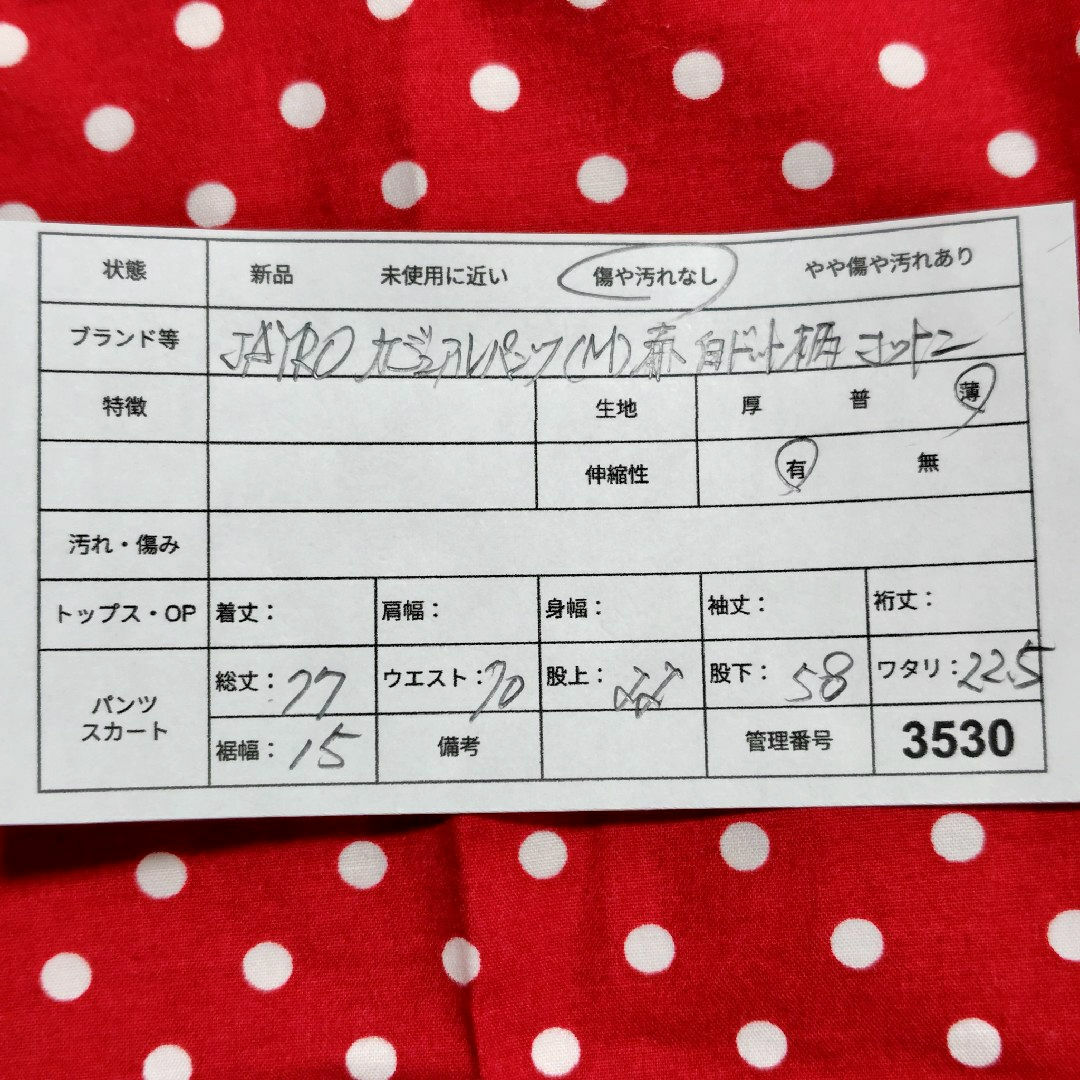 状態 新品 未使用に近い 傷や汚れなし やや傷や汚れあり
ブランド等 JAYRO カジュアルパンツ(M)赤 白ドット柄 コットン
特徴 生地 厚 普 薄
伸縮性 有 無
汚れ・傷み
トップス・OP 着丈： 肩幅： 身幅： 袖丈： 裄丈：
パンツ スカート 総丈：77 ウエスト：70 股上：22 股下：58 ワタリ：22.5
裾幅：15 備考 管理番号 3530